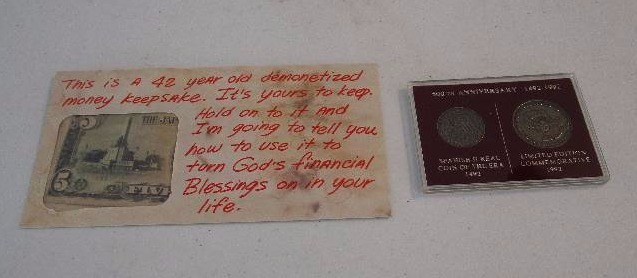 This is a 42 year old demonetized
money keepsake. It's yours to keep.
Hold on to it and
I'm going to tell you
how to use it to
turn God's financial
Blessings on in your
life.
5
THE JA
5
FIVE
500TH ANNIVERSARY 1492-1992
SPANISH REAL
COIN OF THE ERA
1492
LIMITED EDITION
COMMEMORATIVE
1992